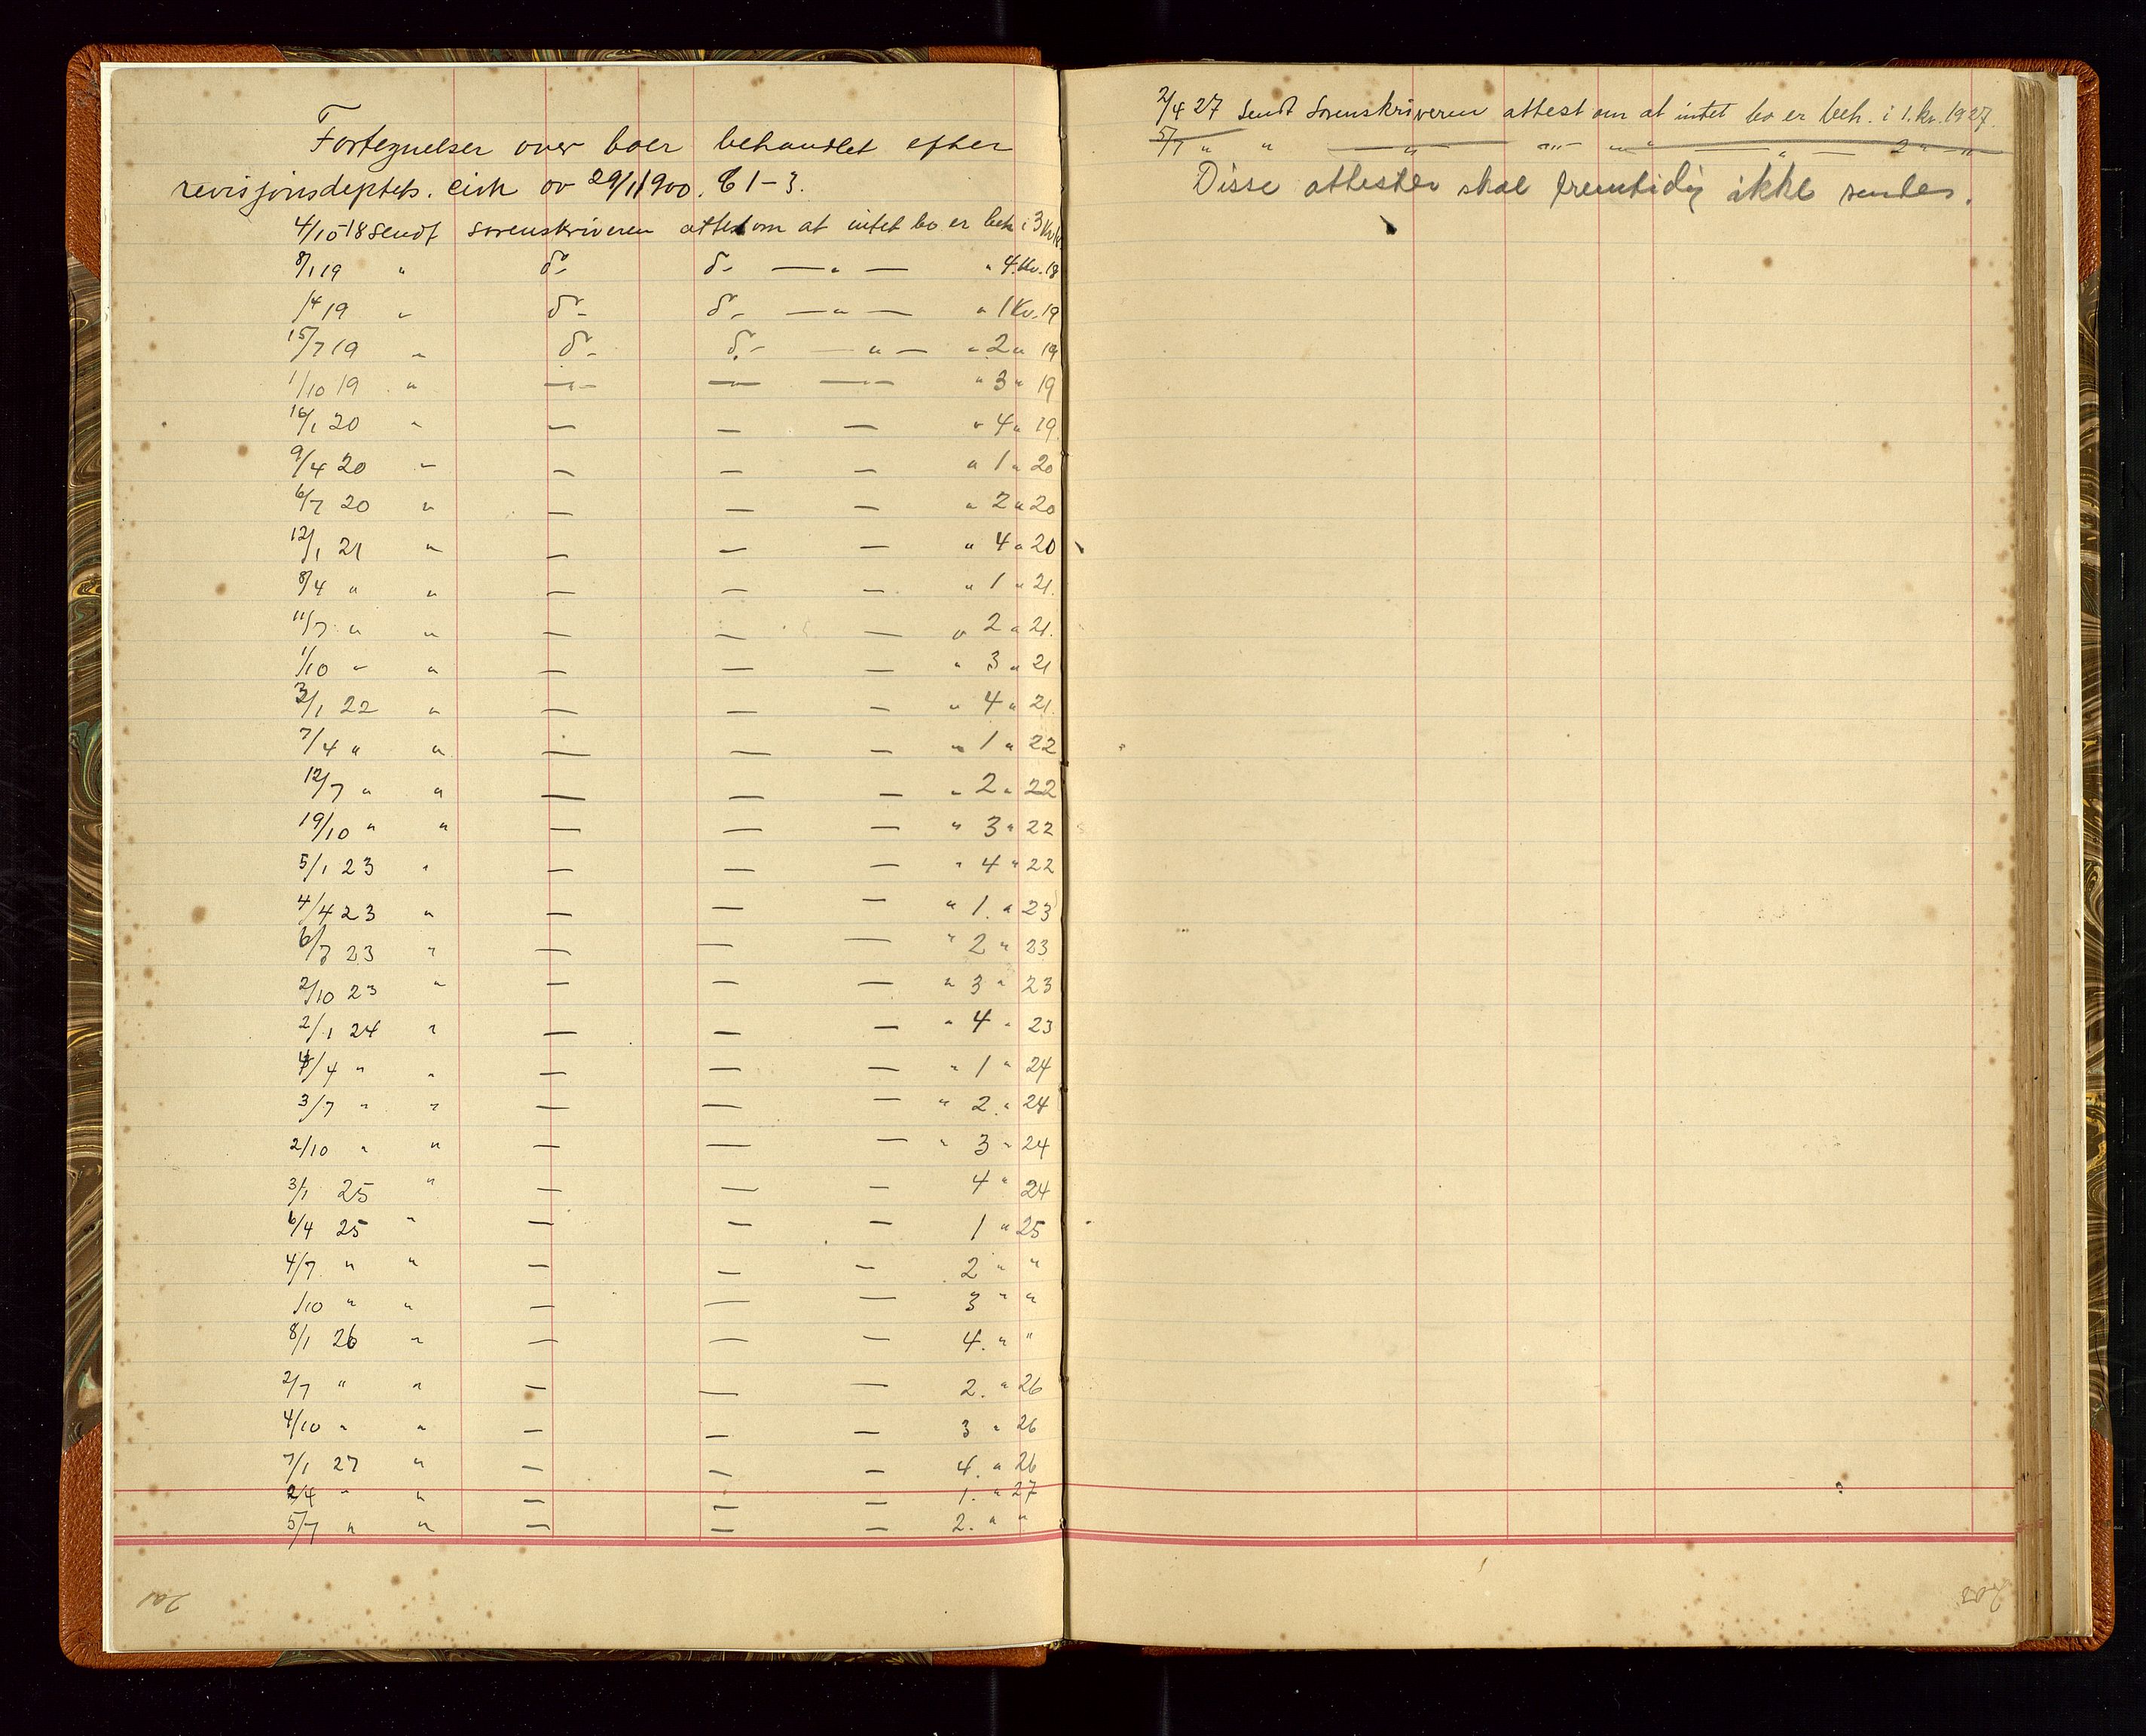 Fortegnelser over boer behandlet efter
revisjonsdeptets. cirk av 29/1 1900. 6 1-3.
4/10-18 sendt sorenskriveren attest om at intet bo er beh i 3 Kv
8/1 19 " do do — " — " 4. Kv. 18
/4 19 " do do — " — " 1 Kv. 19
15/7 19 " do do — " — " 2 " 19
1/10 19 " — " — — — " — " 3 " 19
16/1 20 " — — — " 4 " 19
9/4 20 " — — — " 1 " 20
6/7 20 " — — — " 2 " 20
12/1 21 " — — — " 4 " 20
8/4 " " — — — " 1 " 21.
11/7 " " — — — " 2 " 21.
1/10 " " — — — " 3 " 21
3/1 22 " — — — " 4 " 21.
7/4 " " — — — " 1 " 22
12/7 " " — — — " 2 " 22
19/10 " " — — — " 3 " 22
5/1 23 " — — — " 4 " 22
4/4 23 " — — — " 1. " 23
6/7 23 " — — — " 2 " 23
2/10 23 " — — — " 3 " 23
2/1 24 " — — — " 4 " 23
4/4 " " — — — " 1 " 24
3/7 " " — — — " 2. " 24
2/10 " " — — — " 3 " 24
3/1 25 " — — — 4 " 24
6/4 25 " — — — 1 " 25
4/7 " " — — — 2 " "
/10 " " — — — 3 " "
8/1 26 " — — — 4. " "
2/7 " " — — — 2. " 26
4/10 " " — — — 3 " 26
7/1 27 " — — — 4. " 26
2/4 " " — — — 1. " 27
5/7 " " — — — 2. " "
201
2/4 27 sendt sorenskriveren attest om at intet bo er beh. i 1. kv. 1927.
5/7 " " — " — " " " — " — 2 " — "
Disse attester skal fremtidig ikke sendes.
203